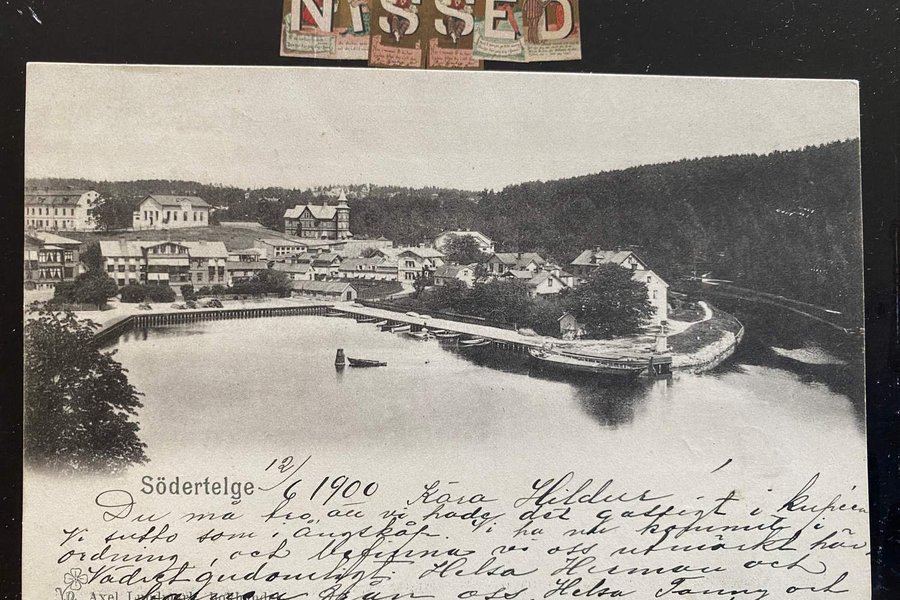 NISSED
Södertelge 12/6 1900 Kära Hildur
Du må tro att vi hade det gassigt i kupéen
Vi sutto som i ångskåp. Vi ha nu kommit i
ordning, och befinna vi oss utmärkt här
Vädret gudomligt. Helsa Herman och
från oss. Helsa Fanny och
Axel